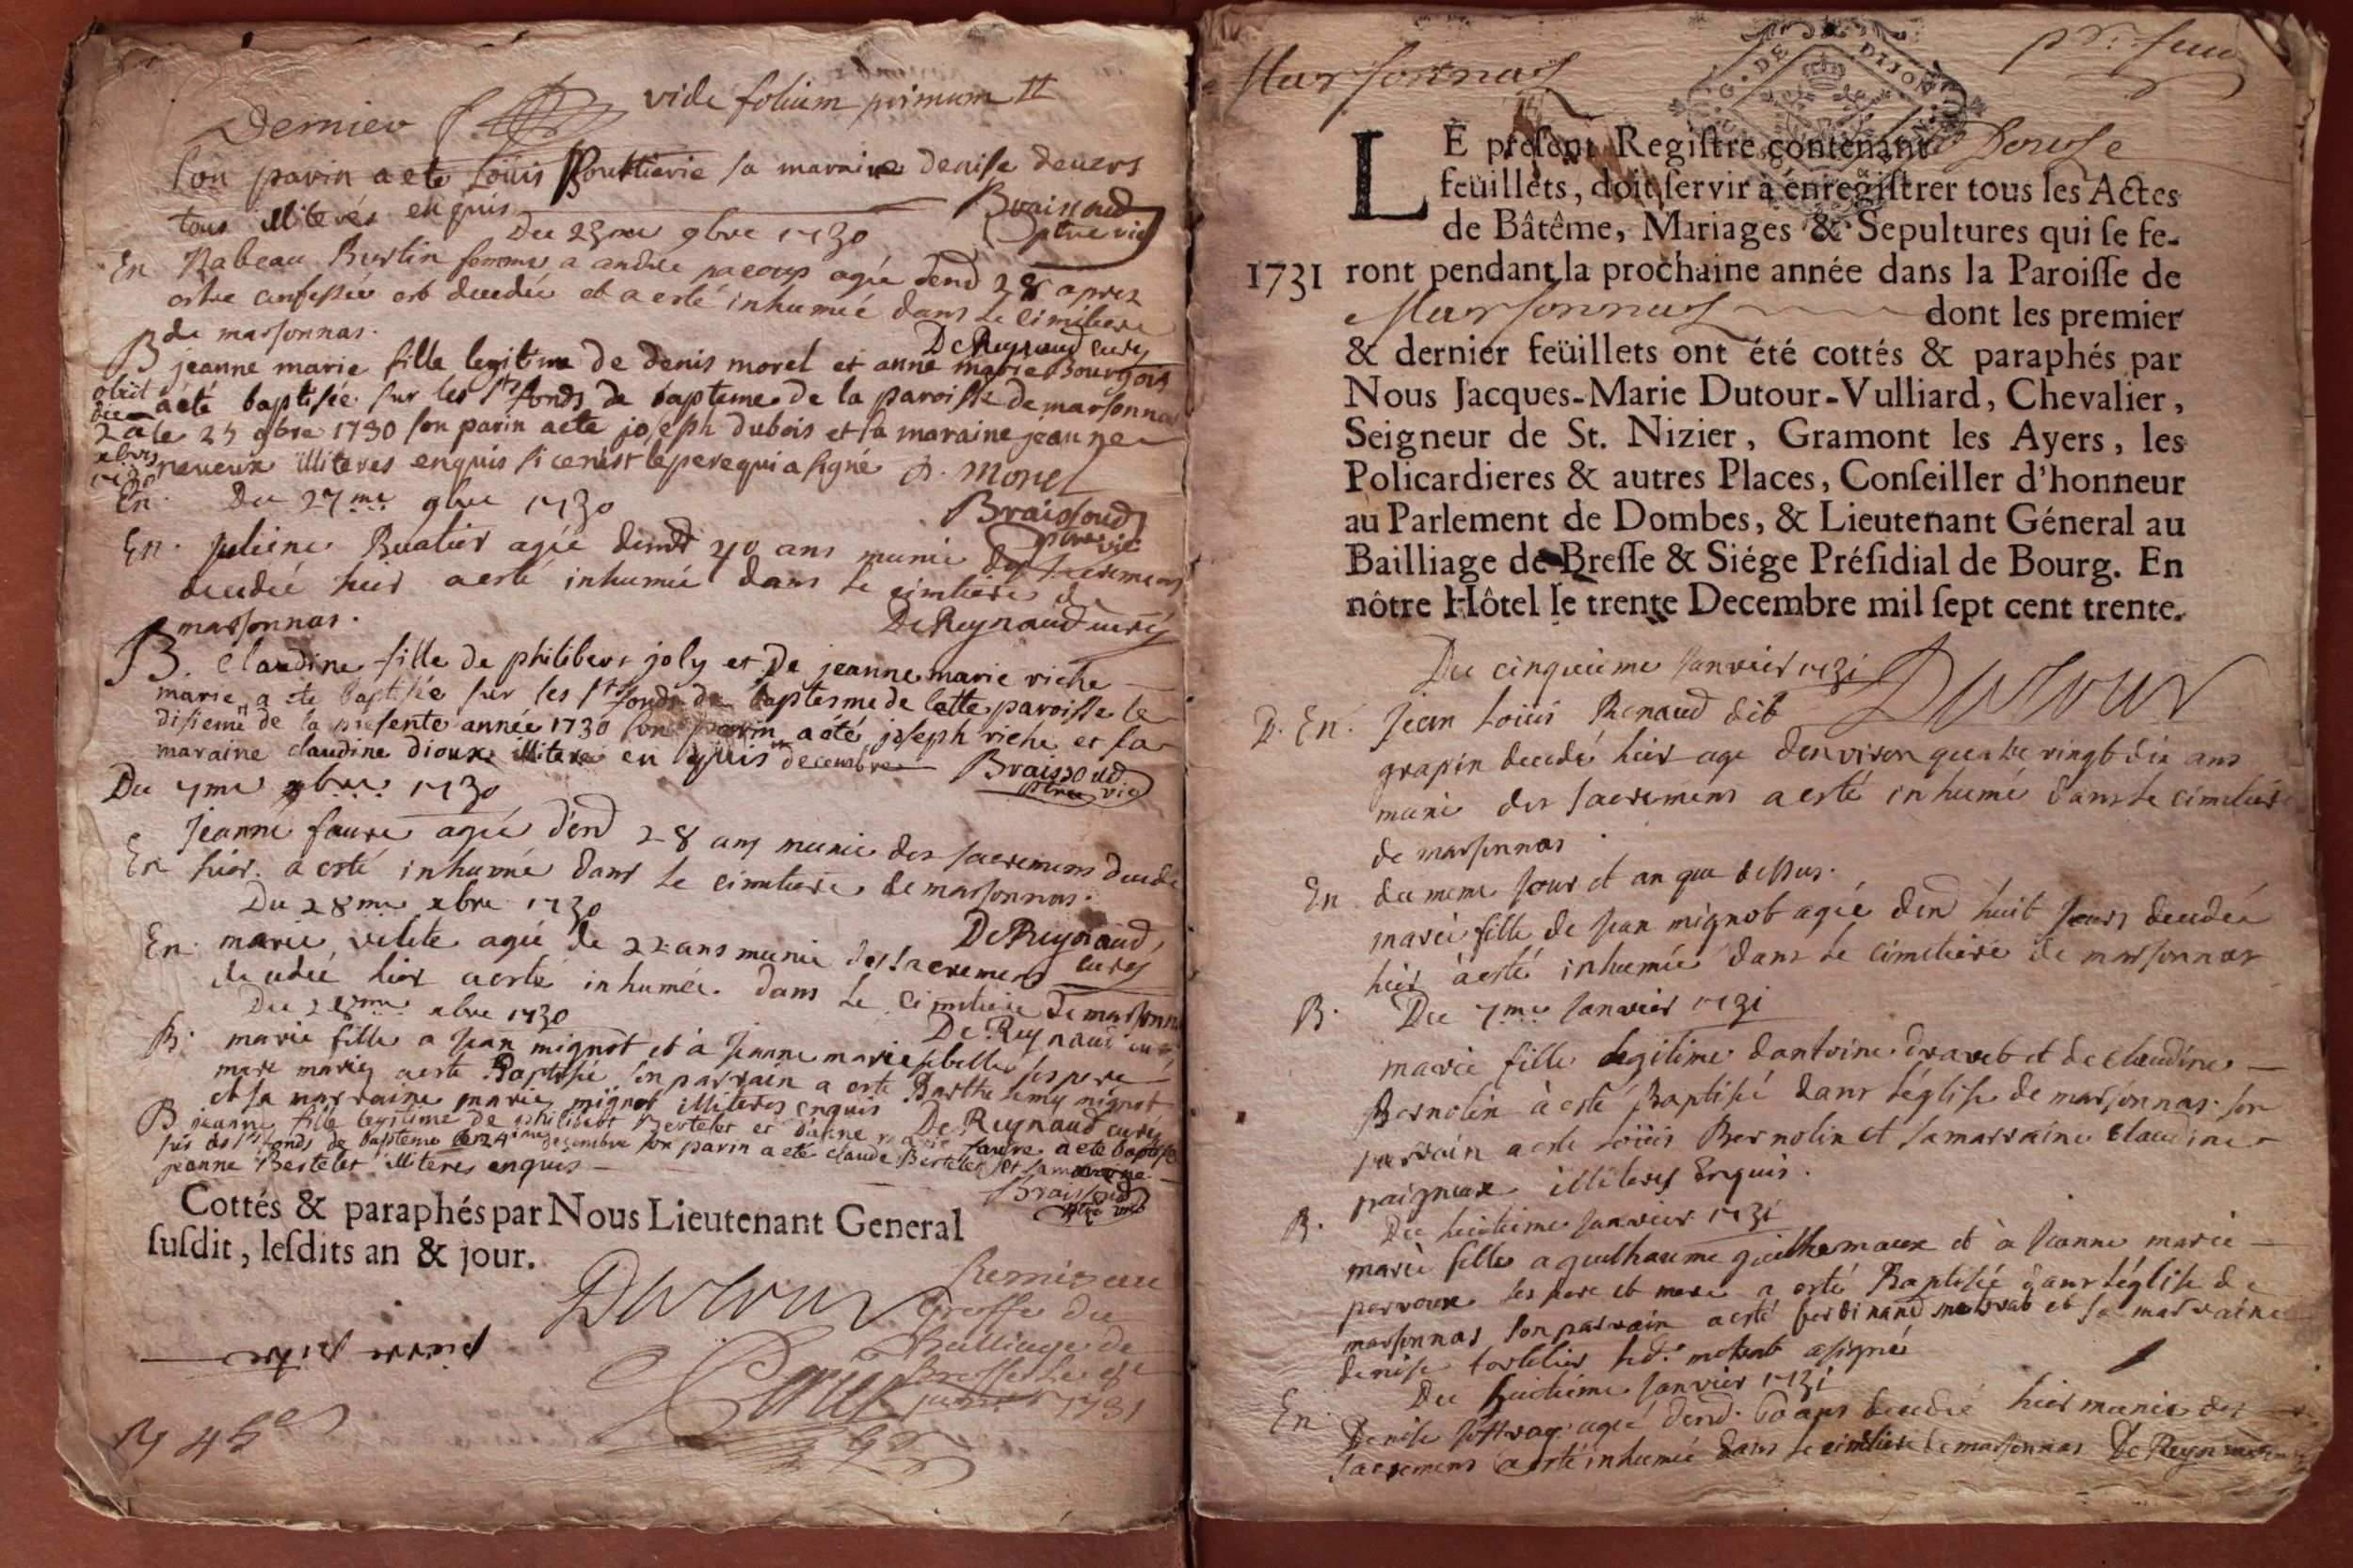 Dernier vide folium primum
son parin a ete Loüis sa maraine denise devers
tous illiterés enquis Braissoud
ptre vic
Du 23me 9bre 1730
En Rabeau Burtin femme a andre pacoup agée dend 28 apres
estre confessée est decedée et a esté inhumée dans le cimetiere
de marsonnas.
DeReynaud curé
B jeanne marie fille legitime de denis morel et anne marie Bourgois
obiit a été baptisée sur les sts fonds de bapteme de la paroisse de marsonnas
die 2a le 25 9bre 1730 son parin a ete joseph dubois et sa maraine jeanne
xbris neveux illiteres enquis si ce n'est le pere qui a signé D. morel
1730
En Du 27me 9bre 1730
Braissoud
ptre vic
En. agée dend 40 ans munie des sacremens
decedée hier a esté inhumée dans le cimetiere de
marsonnas.
DeReynaud curé
B. Claudine fille de philibert joly et de jeanne marie riche
marie a ete baptisée sur les sts fonds de baptesme de cette paroisse le
disieme de la presente année 1730 son parin a été joseph riche et sa
maraine claudine dioux illitere en quis decembre Braissoud
ptre vic
Du 7me xbre 1730
Jeanne faure agée d'end 28 ans munie des sacremens decedée
En hier a esté inhumée dans le cimetiere de marsonnas.
Du 28me xbre 1730
DeReynaud
curé
En. marie velete agée de 22 ans munie des sacremens
decedée hier a esté inhumée dans le cimetiere de marsonnas
Du 28me xbre 1730
De Reynaud curé
B. marie fille a Jean mignot et à Jeanne marie sibelle ses pere
mere mariez a esté Baptisée son parrain a esté Barthelemy mignot
et sa marraine marie mignot illiteres enquis De Reynaud curé
B jeanne fille legitime de philibert Bertelet et d'anne marie faure a ete baptisée
sur les sts fonds de bapteme le 24ime decembre son parin a ete claude Bertelet et sa maraine
jeanne Bertelet illiteres enquis
Braissoud
ptre vic
Cottés & paraphés par Nous Lieutenant General
susdit, lesdits an & jour.
Dutour
Remis au
Greffe du
Balliage de
Bresse le
1731
Marsonnas
G. DE DIJON
LE present Registre contenant Douse
feüillets, doit servir à enregistrer tous les Actes
de Bâtême, Mariages & Sepultures qui se fe-
1731 ront pendant la prochaine année dans la Paroisse de
Marsonnas dont les premier
& dernier feüillets ont été cottés & paraphés par
Nous Jacques-Marie Dutour-Vulliard, Chevalier,
Seigneur de St. Nizier, Gramont les Ayers, les
Policardieres & autres Places, Conseiller d'honneur
au Parlement de Dombes, & Lieutenant Géneral au
Bailliage de Bresse & Siége Présidial de Bourg. En
nôtre Hôtel le trente Decembre mil sept cent trente.
Du cinquieme Janvier 1731
Dutour
En. Jean Loüis Renaud dit
grapin decedé hier agé denviron quatre vingt dix ans
muni des sacremens a esté inhumé dans le cimetiere
de marsonnas
En du meme jour et an que dessus.
marie fille de Jean mignot agée den huit jours decedée
hier à esté inhumée dans le cimetiere de marsonnas
B. Du 7me Janvier 1731
marie fille legitime dantoine dravet et de claudine
Bernolin à esté Baptisé dans l'église de marsonnas son
parrain a esté Loüis Bernolin et sa marraine claudine
paigneux illiteres Enquis.
B. Du huitieme Janvier 1731
marie fille a guilhaume guilhemaux et à Jeanne marie
perroux ses pere et mere a esté Baptisée dans l'église de
marsonnas son parrain a esté ferdinand metrat et sa marraine
denise tortelier led. metrat a signé
Du huitieme Janvier 1731
En. Denise agée dend. 60 ans decedée hier munie des
sacremens a esté inhumée dans le cimetiere de marsonnas De Reynaud